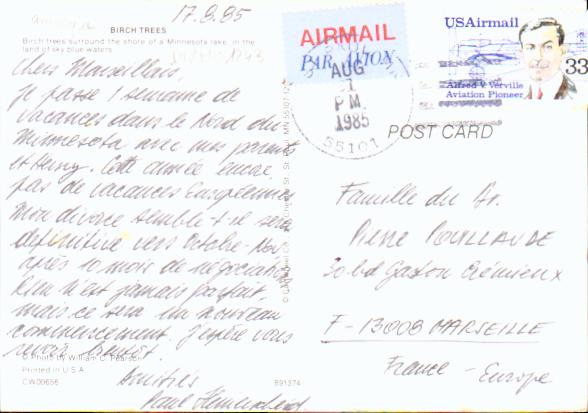 17.8.85
BIRCH TREES
Birch trees surround the shore of a Minnesota lake, in the
land of sky blue waters.
Chers Marseillais,
Je passe 1 semaine de
vacances dans le Nord du
Minnesota avec mes parents
et Heiny. Cette année encore
pas de vacances Européennes
Mon divorce semble-t-il sera
définitive vers Octobre-Nov.
après 10 mois de négociation
Rien n'est jamais parfait,
mais ce sera un nouveau
commencement. J'espère vous
revoir bientôt.
Amitiés
Paul
© Photo by William C. Pearson
Printed in U.S.A.
CW00656
891374
AIRMAIL
PAR AVION
AUG
P.M.
1985
55101
USAirmail
33
Alfred V. Verville
Aviation Pioneer
POST CARD
Famille du Dr.
Pierre POUILLAUDE
20 bd Gaston Crémieux
F-13008 MARSEILLE
France - Europe